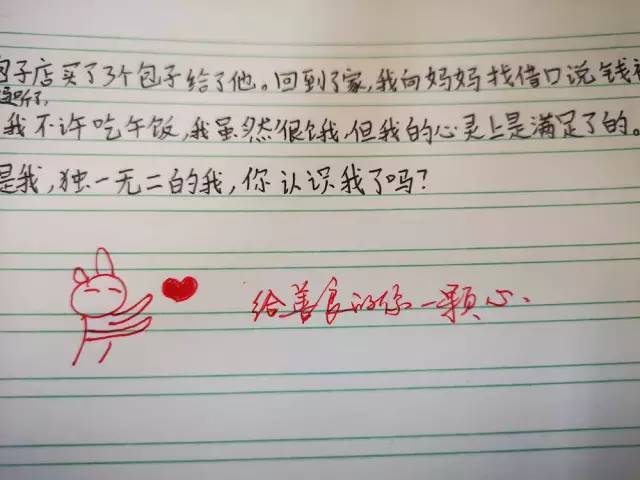 包子店买了了3个包子给了他。回到了家,我向妈妈找借口说钱
听了,
我不许吃午饭,我虽然很饿,但我的心灵上是满足了的。
是我,独一无二的我,你认识我了吗?
给善良的你一颗心.